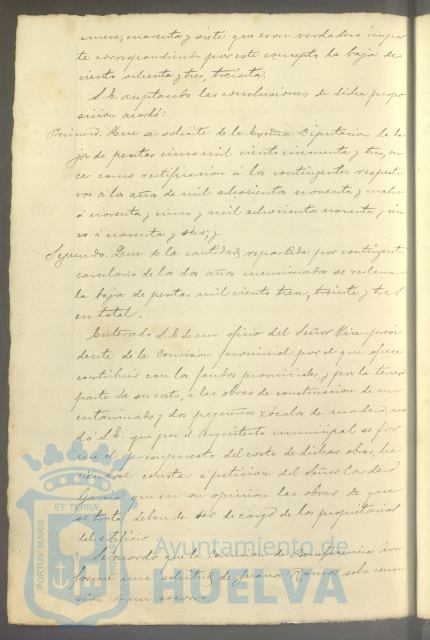 nueve, cuarenta y siete que es su verdadero impor
te correspondiendo por este concepto la baja de
ciento ochenta y tres, treinta.
S.E. aceptando las conclusiones de dicha propo
sicion acordó:
Primero. Que se solicite de la Excma. Diputacion la ba
ja de pesetas cinco mil ciento cincuenta y tres, on
ce como rectificacion á los contingentes respecti
vos á los años de mil ochocientos noventa y cuatro
á noventa y cinco y mil ochocientos noventa y cin
co á noventa y seis; y
Segundo. Que de la cantidad repartida por contingente
carcelario de los dos años mencionados se reclame
la baja de pesetas mil ciento tres, treinta y tres
en total.
Enterado S.E. de un oficio del Señor Vice-presi
dente de la Comision provincial por el que ofrece
contribuir con los fondos provinciales y por la tercera
parte de su costo, á las obras de construccion de un
entarimado y dos pequeños zócalos de madera, acor
dó S.E. que por el Arquitecto municipal se for
me el presupuesto del costo de dichas obras, ha
ciendose constar á peticion del Señor Cordero
Garcia que en su opinion las obras de que
se trata deben de ser de cargo de los propietarios
del edificio.
Se acordó que la Comision de Beneficencia in
forme una solicitud de Juana Ramos sobre conce
sion de un socorro.
PORTUS MARIS
ET TERRAE
Ayuntamiento de
HUELVA